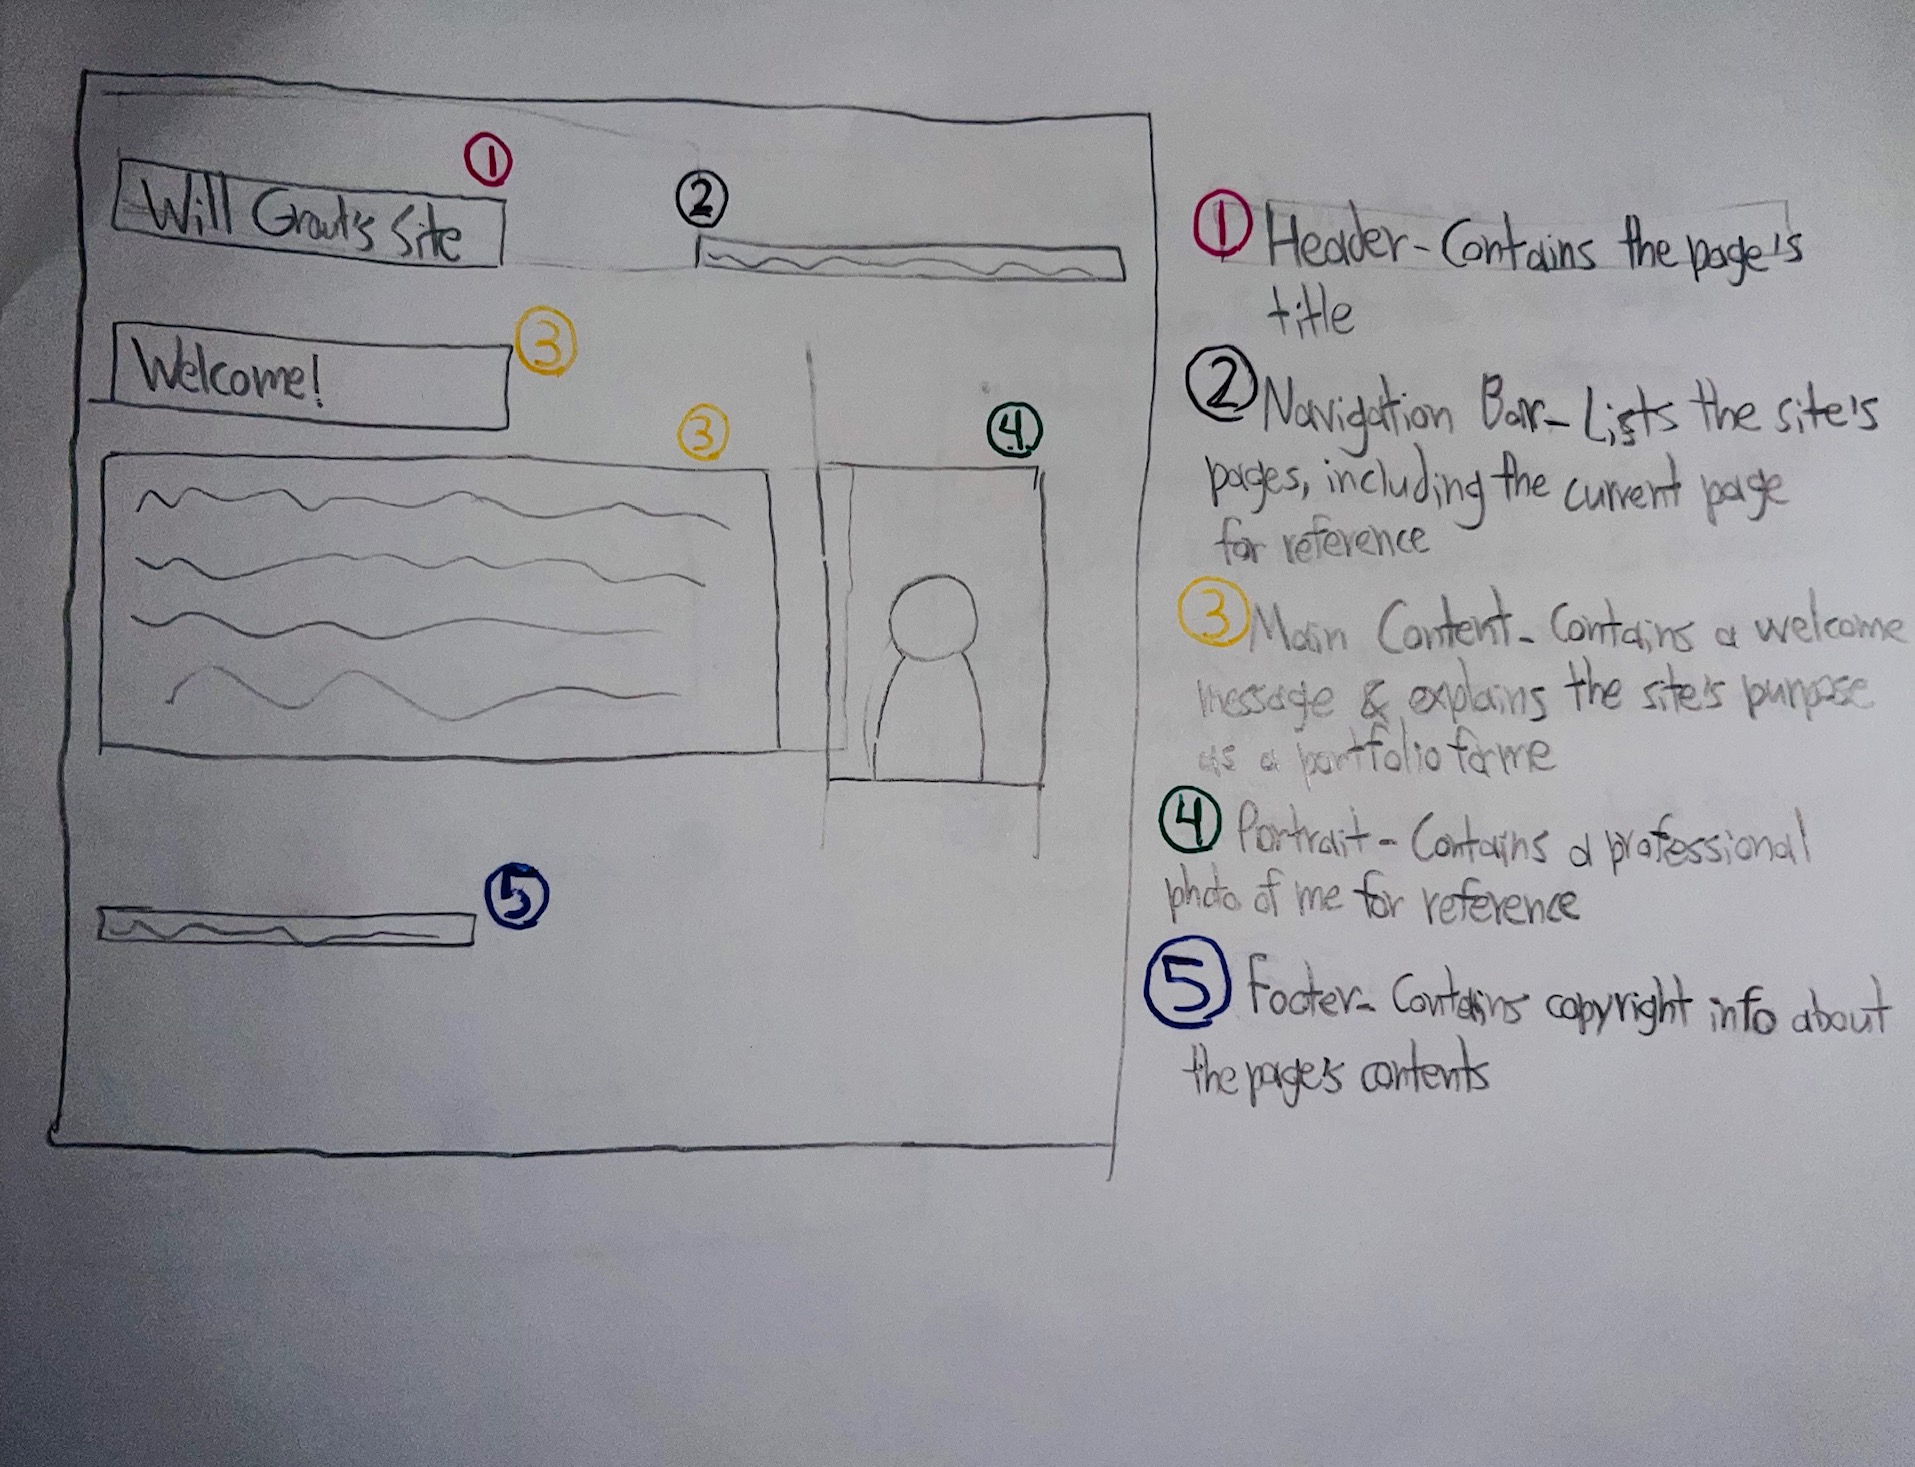 ①
②
Will Graul's Site
③
Welcome!
③
④
⑤
① Header - Contains the page's
title
② Navigation Bar - Lists the site's
pages, including the current page
for reference
③ Main Content - Contains a welcome
message & explains the site's purpose
as a portfolio for me
④ Portrait - Contains a professional
photo of me for reference
⑤ Footer - Contains copyright info about
the page's contents